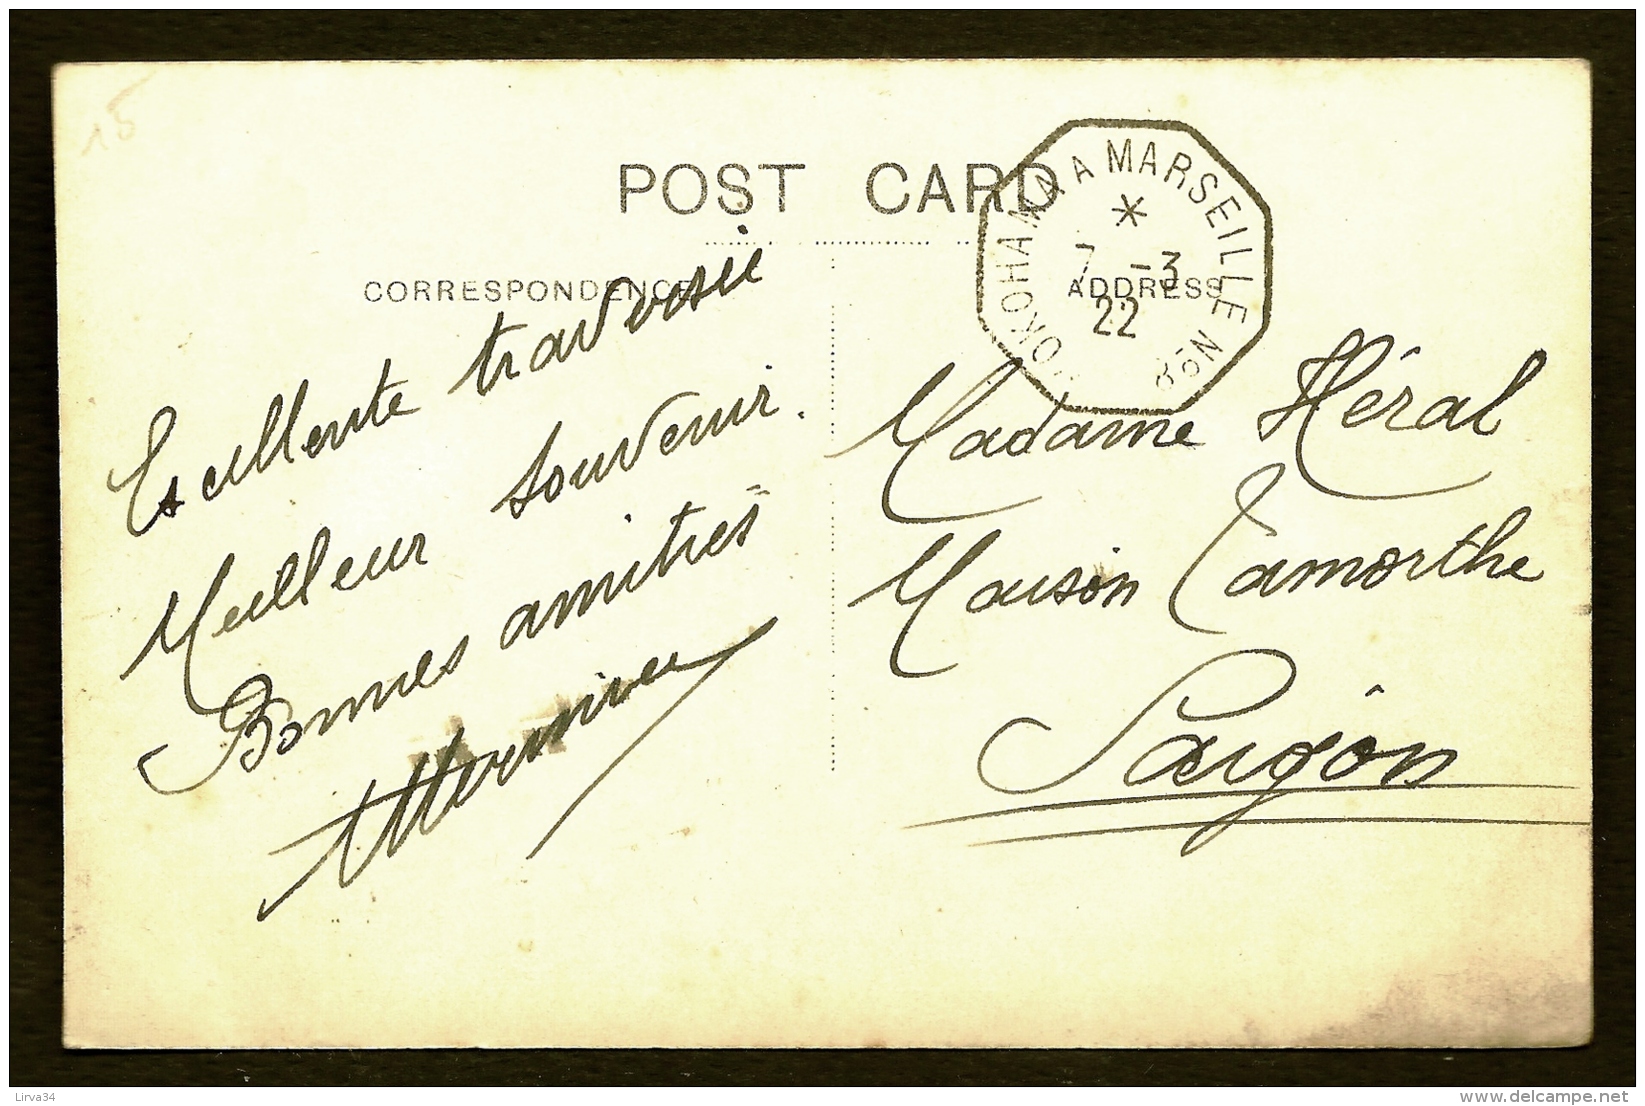 15
POST CARD
CORRESPONDENCE
ADDRESS
YOKOHAMA A MARSEILLE No 8
7 -3
22
Excellente traversée
Meilleur souvenir.
Bonnes amitiés
Madame Héral
Maison Lamorthe
Saigon
Lirva34
www.delcampe.net